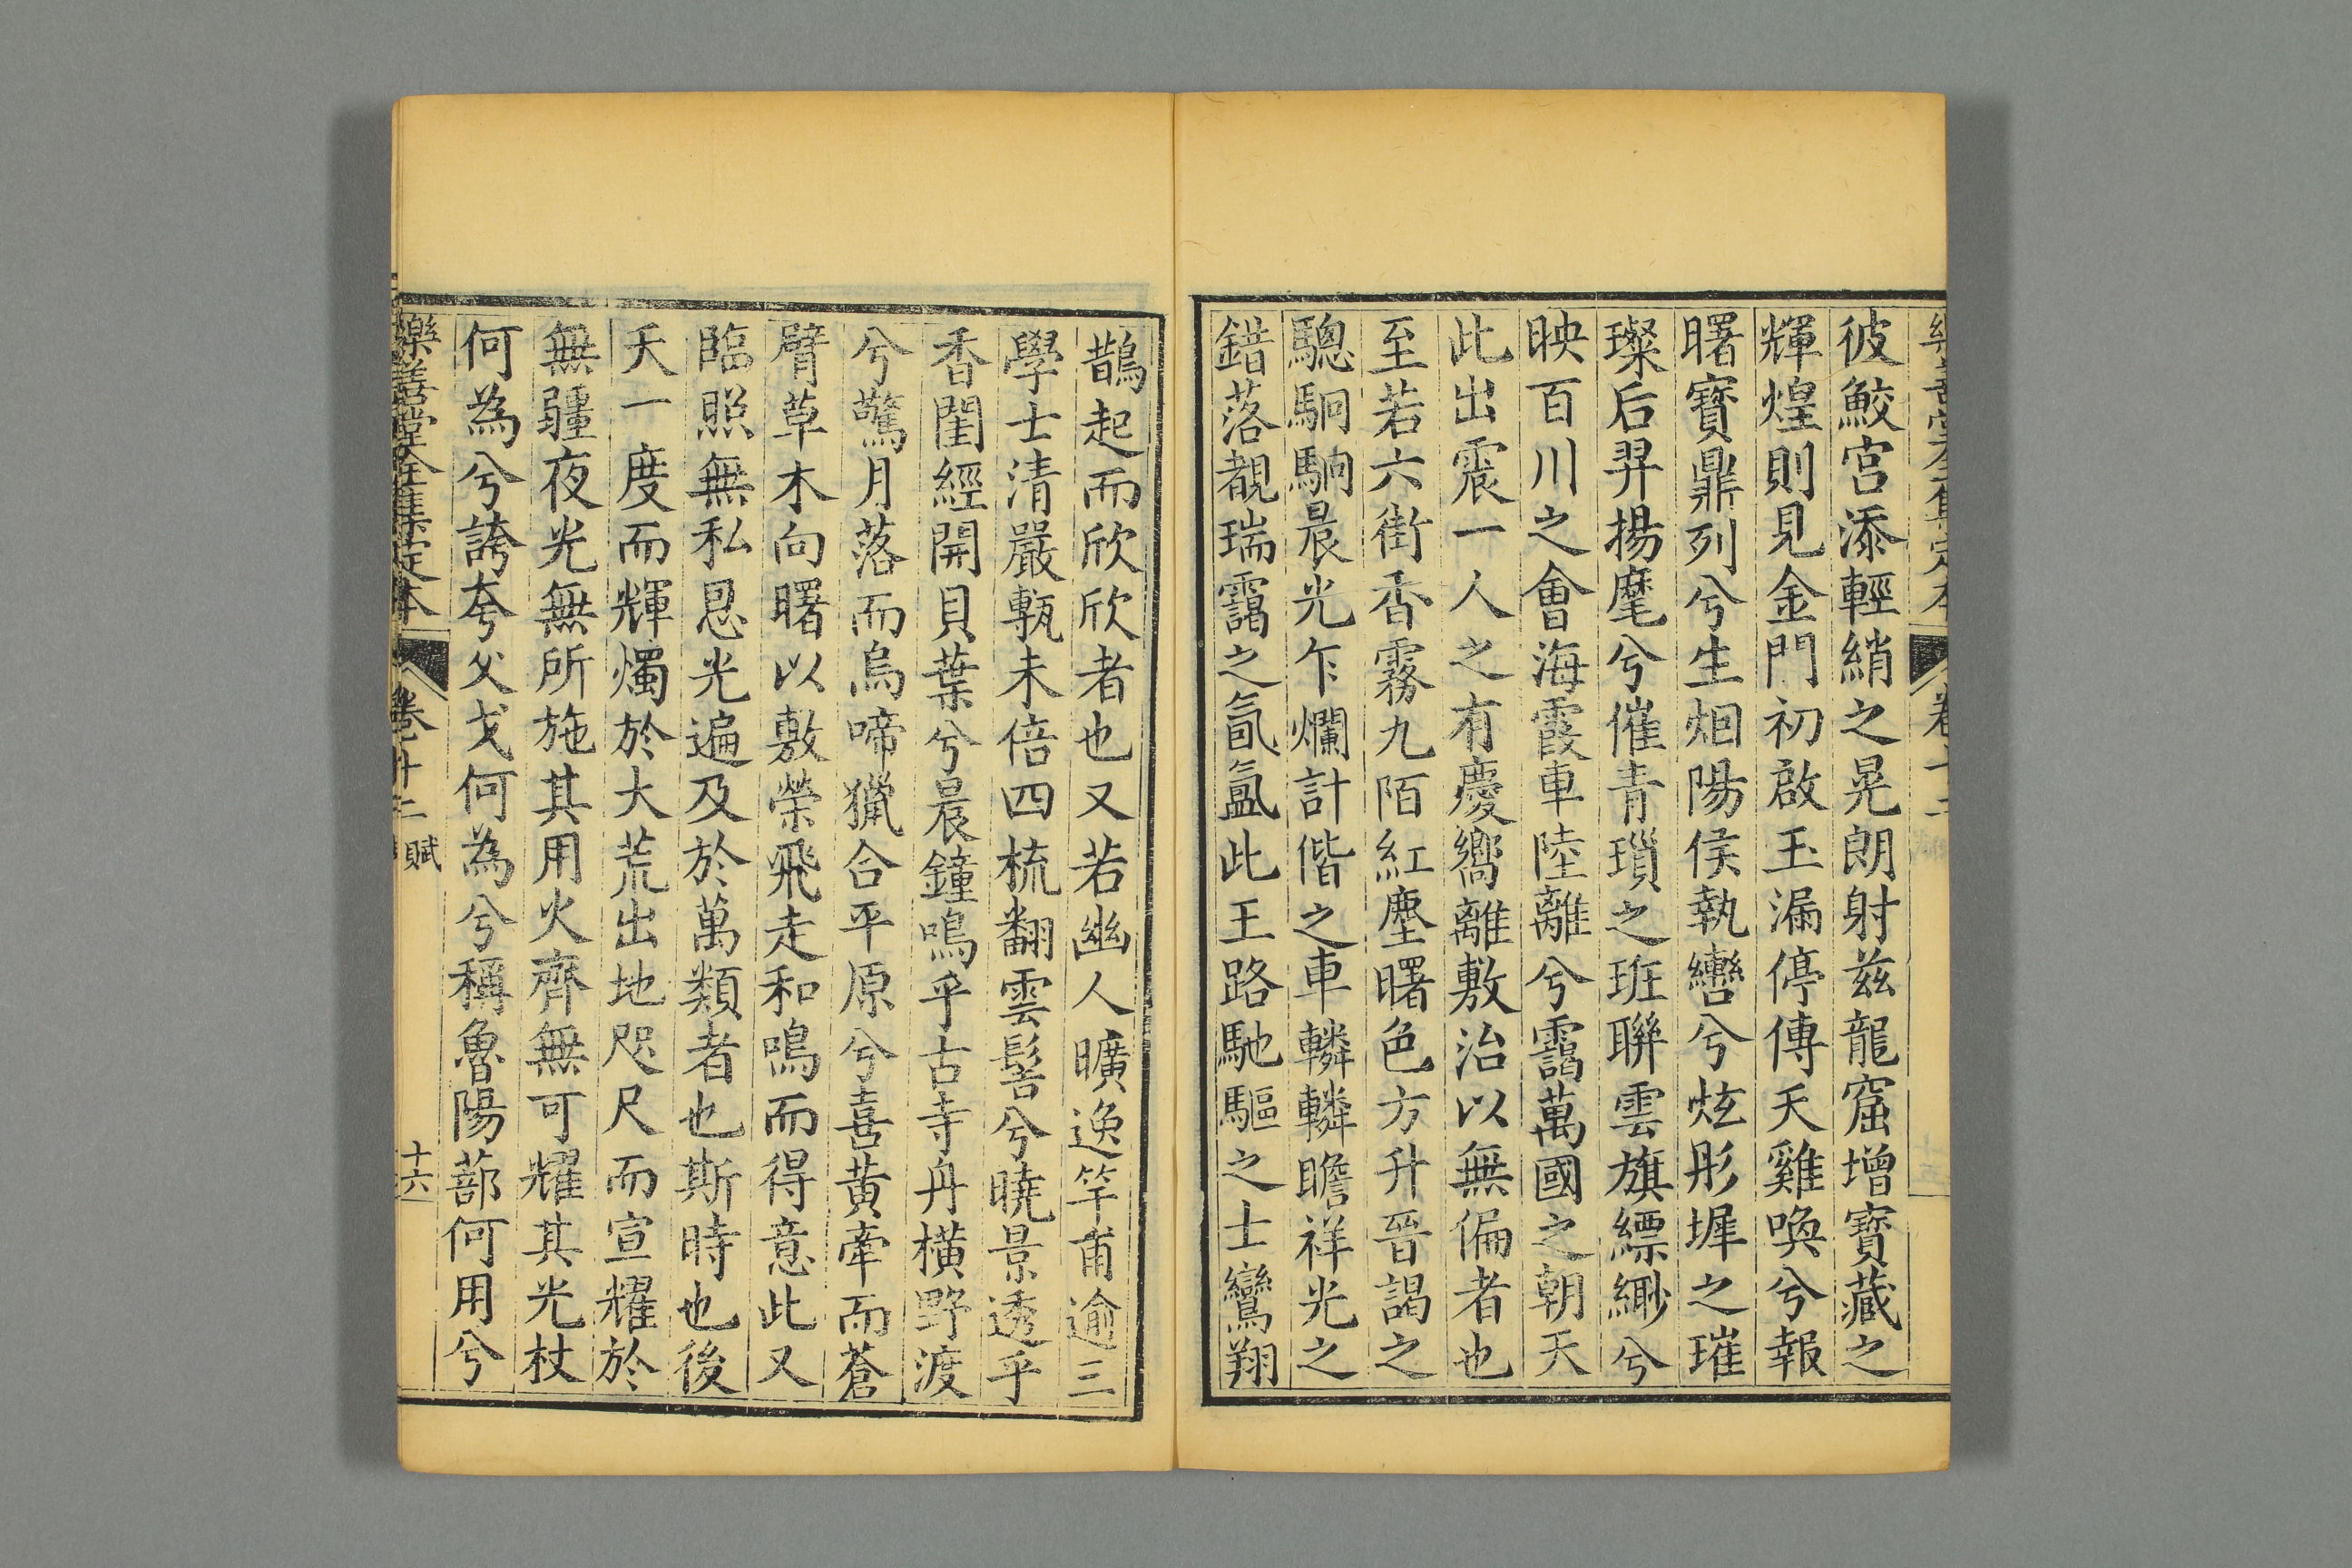 彼鮫宮添輕綃之晃朗射兹龍窟增寶藏之
輝煌則見金門初啟玉漏停傳天雞喚兮報
曙寶鼎列兮生烟陽侯執轡兮炫彤墀之璀
璨后羿揚麾兮催青瑣之班聯雲旗縹緲兮
映百川之會海霞車陸離兮靄萬國之朝天
此出震一人之有慶嚮離敷治以無偏者也
至若六街香霧九陌紅塵曙色方升晉謁之
驄駉駉晨光乍爛計偕之車轔轔瞻祥光之
錯落覩瑞靄之氤氳此王路馳驅之士鸞翔
鵲起而欣欣者也又若幽人曠逸竿甫逾三
學士清嚴甎未倍四梳翻雲髻兮曉景透乎
香閨經開貝葉兮晨鐘鳴乎古寺舟橫野渡
兮驚月落而烏啼獵合平原兮喜黃牽而蒼
臂草木向曙以敷榮飛走和鳴而得意此又
臨照無私恩光遍及於萬類者也斯時也後
天一度而輝燭於大荒出地咫尺而宣耀於
無疆夜光無所施其用火齊無可耀其光杖
何為兮誇夸父戈何為兮稱魯陽蔀何用兮
樂善堂全集定本
卷十二 賦
十六